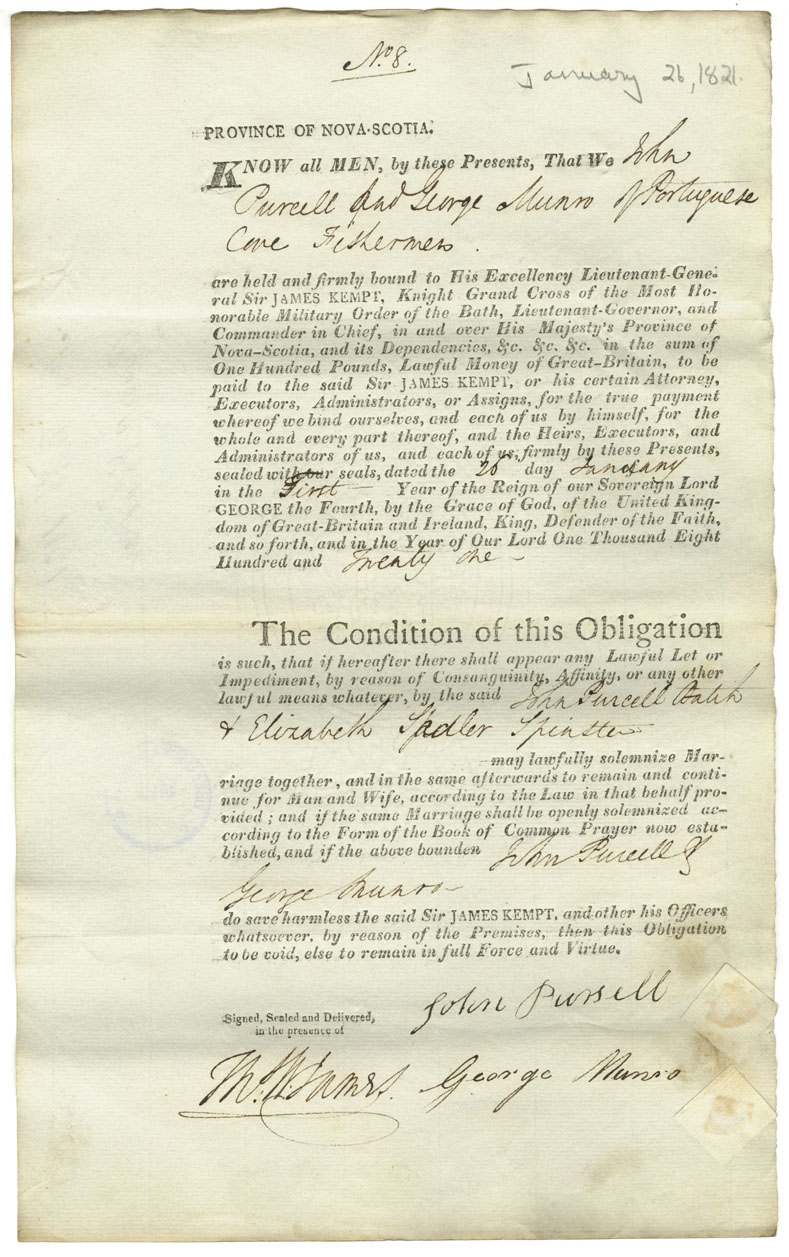 No. 8.
January 26, 1821.
PROVINCE OF NOVA-SCOTIA.
KNOW all MEN, by these Presents, That We John
Purcell And George Munro of Portuguese
Cove Fishermen.
are held and firmly bound to His Excellency Lieutenant-Gene-
ral Sir JAMES KEMPT, Knight Grand Cross of the Most Ho-
norable Military Order of the Bath, Lieutenant-Governor, and
Commander in Chief, in and over His Majesty's Province of
Nova-Scotia, and its Dependencies, &c. &c. &c. in the sum of
One Hundred Pounds, Lawful Money of Great-Britain, to be
paid to the said Sir JAMES KEMPT, or his certain Attorney,
Executors, Administrators, or Assigns, for the true payment
whereof we bind ourselves, and each of us by himself, for the
whole and every part thereof, and the Heirs, Executors, and
Administrators of us, and each of us, firmly by these Presents,
sealed with our seals, dated the 26 day January
in the First Year of the Reign of our Sovereign Lord
GEORGE the Fourth, by the Grace of God, of the United King-
dom of Great-Britain and Ireland, King, Defender of the Faith,
and so forth, and in the Year of Our Lord One Thousand Eight
Hundred and Twenty One -
The Condition of this Obligation
is such, that if hereafter there shall appear any Lawful Let or
Impediment, by reason of Consanguinity, Affinity, or any other
lawful means whatever, by the said John Purcell Batch
& Elizabeth Sadler Spinster
may lawfully solemnize Mar-
riage together, and in the same afterwards to remain and conti-
nue for Man and Wife, according to the Law in that behalf pro-
vided; and if the same Marriage shall be openly solemnized ac-
cording to the Form of the Book of Common Prayer now esta-
blished, and if the above bounden John Purcell &
George Munro -
do save harmless the said Sir JAMES KEMPT, and other his Officers
whatsoever, by reason of the Premises, then this Obligation
to be void, else to remain in full Force and Virtue.
John Pursell
Signed, Sealed and Delivered,
in the presence of
Th. W. James. George Munro